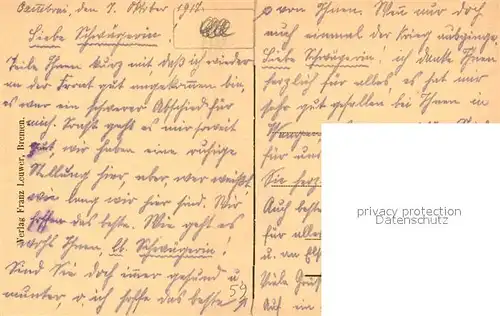 Cambrai, den 7. Oktober 1917.
Liebe Schwägerin!
Teile Ihnen kurz mit, daß ich wieder
an der Front gut angekommen bin,
es war ein schwerer Abschied für
mich. Sonst geht es mir soweit
gut, wir haben eine ruhige
Stellung hier, aber, wer weiß
wie lang wir hier sind. Wir
hoffen das beste. Wie geht es
wohl Ihnen, lb. Schwägerin!
Sind Sie doch immer gesund u.
munter, o, ich hoffe das beste
54
Verlag Franz Leuwer, Bremen.
von Ihnen. Wenn nur doch
auch einmal der Krieg ausginge.
Liebe Schwägerin! ich danke Ihnen
herzlich für alles, es hat mir
sehr gut gefallen bei Ihnen in
für
Sie
Auch
für alles
u. von
Viele
Auf
privacy protection
Datenschutz